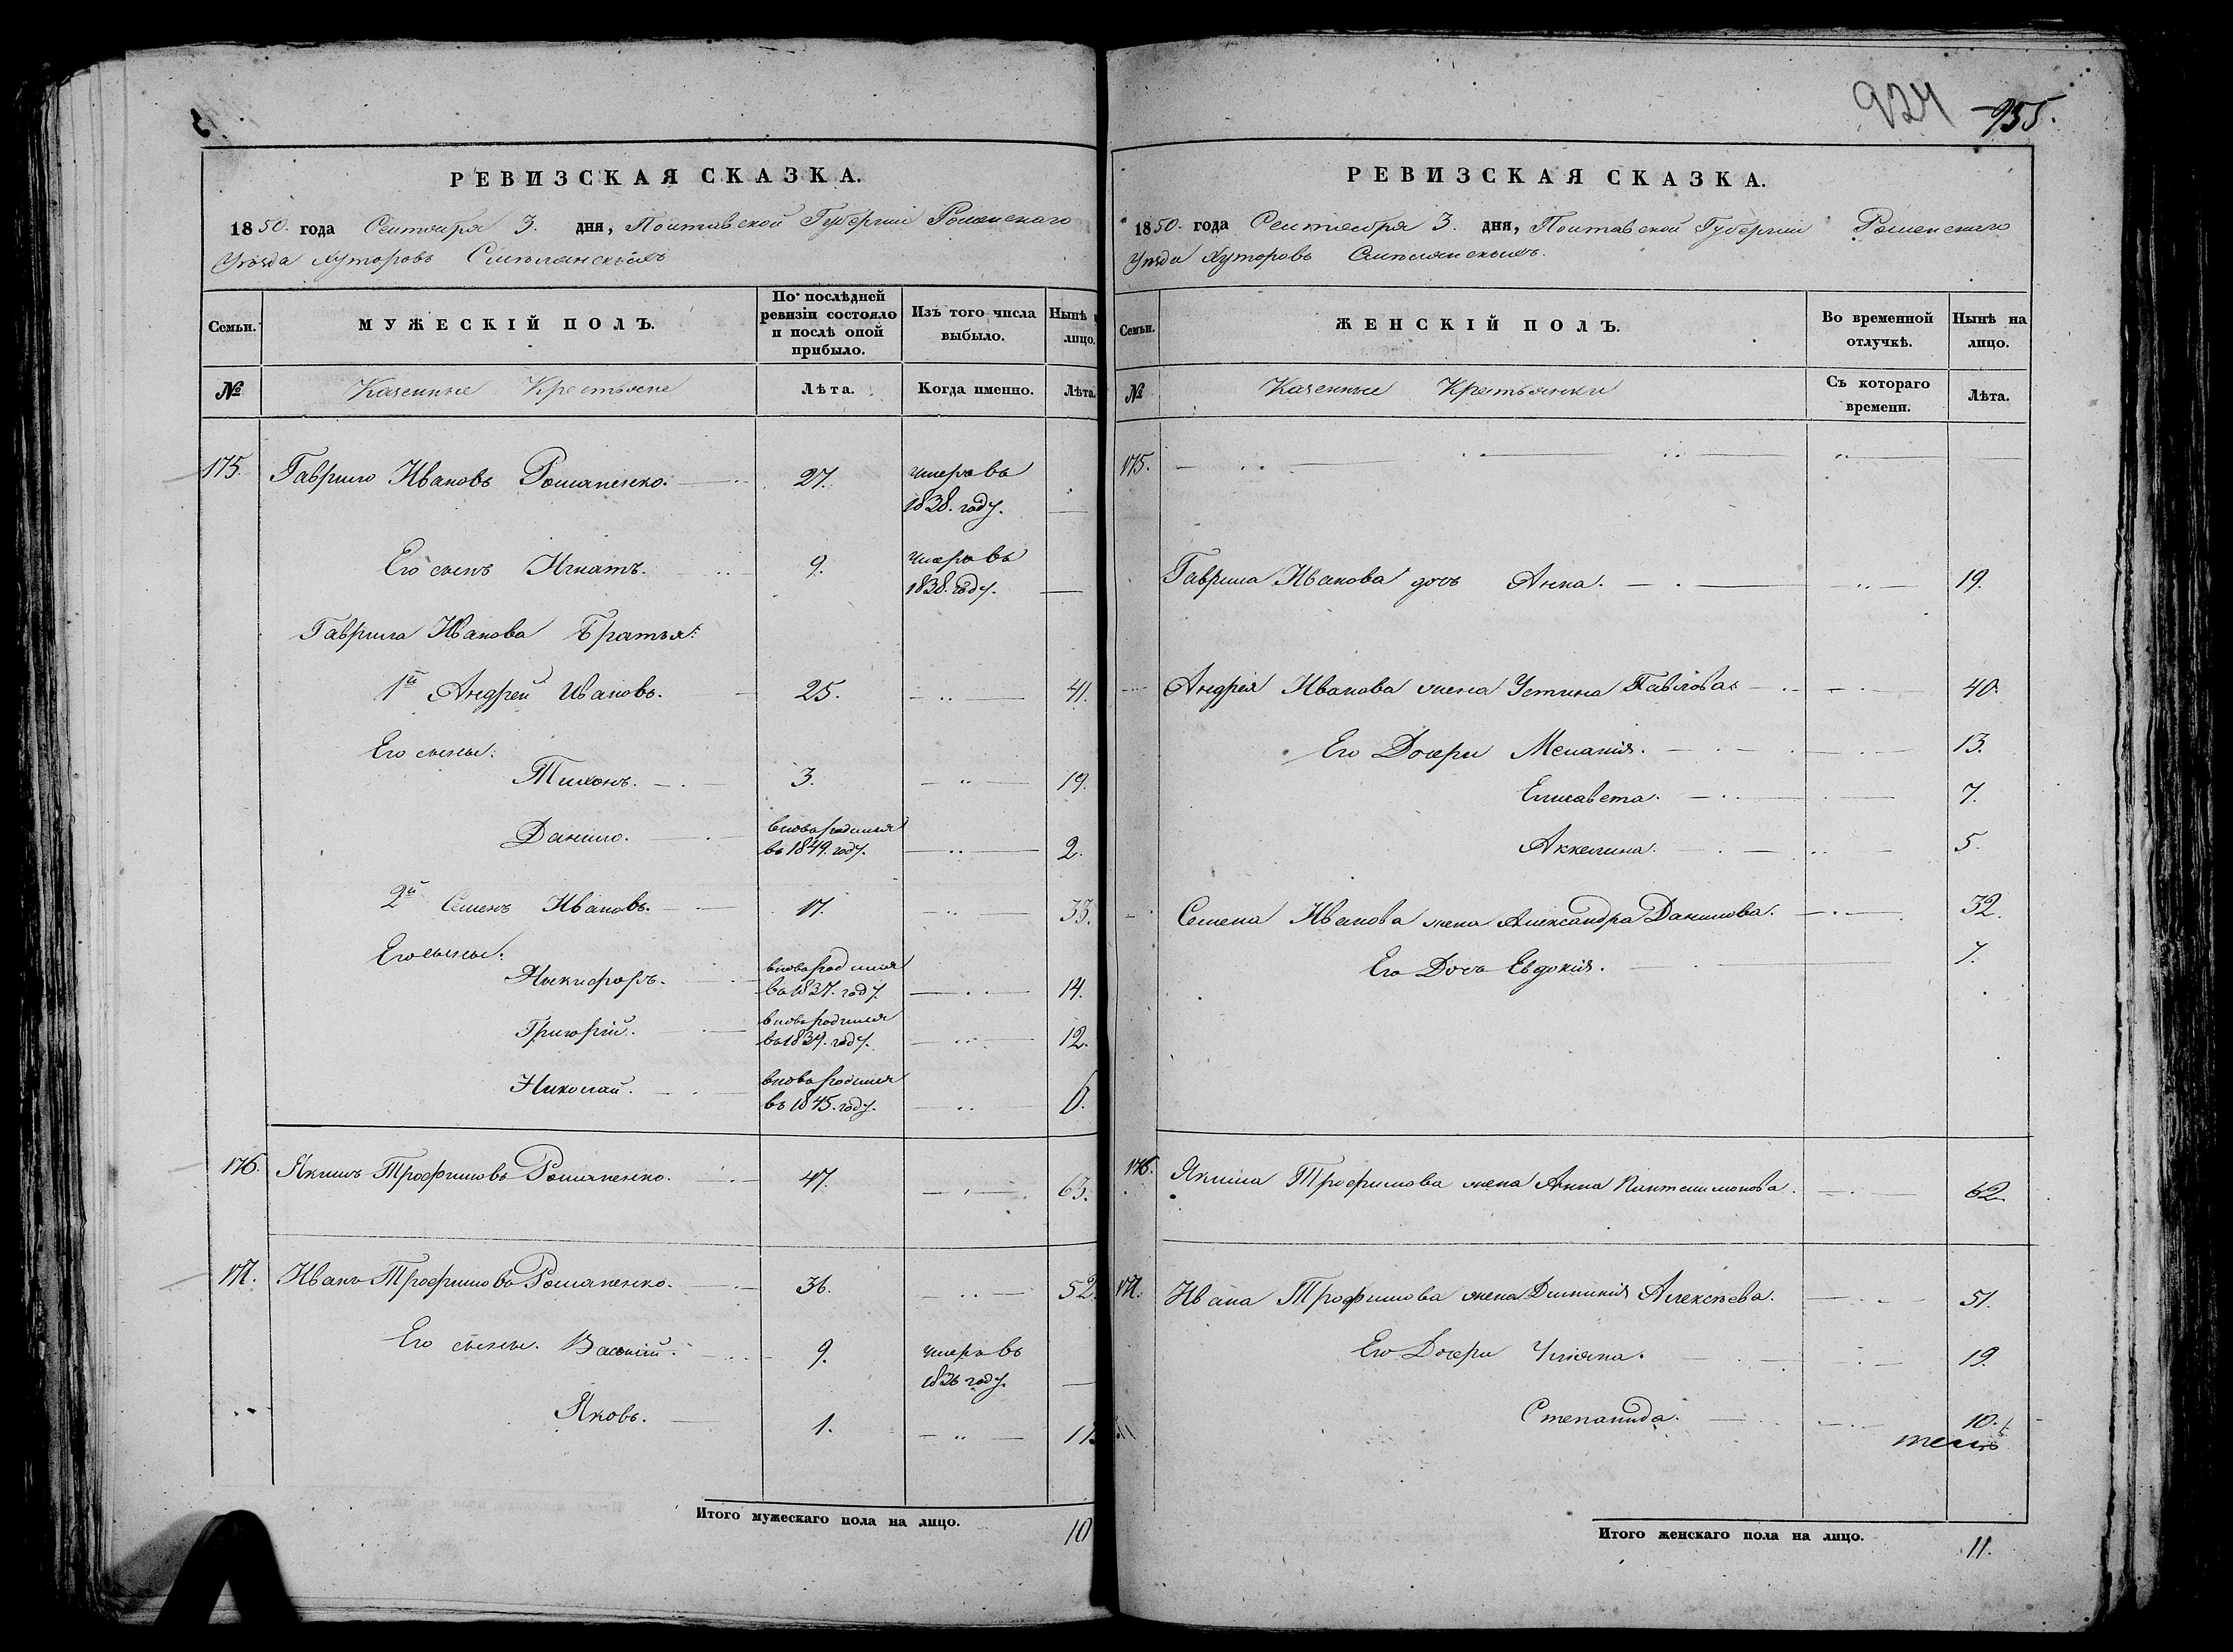 924 955.
РЕВИЗСКАЯ СКАЗКА.
1850. года Сентября 3. дня, Полтавской Губерніи Роменскаго
Уѣзда Хуторовъ Смѣлянскихъ
Семьи. МУЖЕСКІЙ ПОЛЪ. По послѣдней ревизіи состояло и послѣ оной прибыло. Изъ того числа выбыло. Нынѣ лицо.
№ Казенные Крестьяне Лѣта. Когда именно. Лѣта.
175. Гаврило Ивановъ Романенко. 27. умеръ въ
1838. году.
Его сынъ Игнатъ. 9. умеръ въ
1838. году.
Гаврила Иванова Братья:
1й Андрей Ивановъ. 25. 41.
Его сыны:
Тихонъ. 3. 19.
Данило. вновь родился
въ 1849. году. 2.
2й Семенъ Ивановъ. 17. 33.
Его сыны:
Никифоръ. вновь родился
въ 1837. году. 14.
Григорій. вновь родился
въ 1839. году. 12.
Николай. вновь родился
въ 1845. году. 6.
176. Якимъ Трофимовъ Романенко. 47. 63.
177. Иванъ Трофимовъ Романенко. 36. 52.
Его сыны. Василій. 9. умеръ въ
1836 году.
Яковъ. 1. 17.
Итого мужескаго пола на лицо. 10
РЕВИЗСКАЯ СКАЗКА.
1850. года Сентября 3. дня, Полтавской Губерніи Роменскаго
Уѣзда Хуторовъ Смѣлянскихъ.
Семьи. ЖЕНСКІЙ ПОЛЪ. Во временной отлучкѣ. Нынѣ на лицо.
№ Казенные Крестьянки Съ котораго времени. Лѣта.
175.
Гаврила Иванова дочь Анна. 19.
Андрея Иванова жена Устина Павлова 40.
Его Дочери Меланія. 13.
Елисавета. 7.
Аккелина. 5.
Семена Иванова жена Александра Данилова. 32.
Его Дочь Евдокія. 7.
176. Якима Трофимова жена Анна Пантелимонова. 62.
177. Ивана Трофимова жена Домникія Алексѣева. 51.
Его Дочери Уліяна. 19.
Степанида. 10.
Итого женскаго пола на лицо. 11.